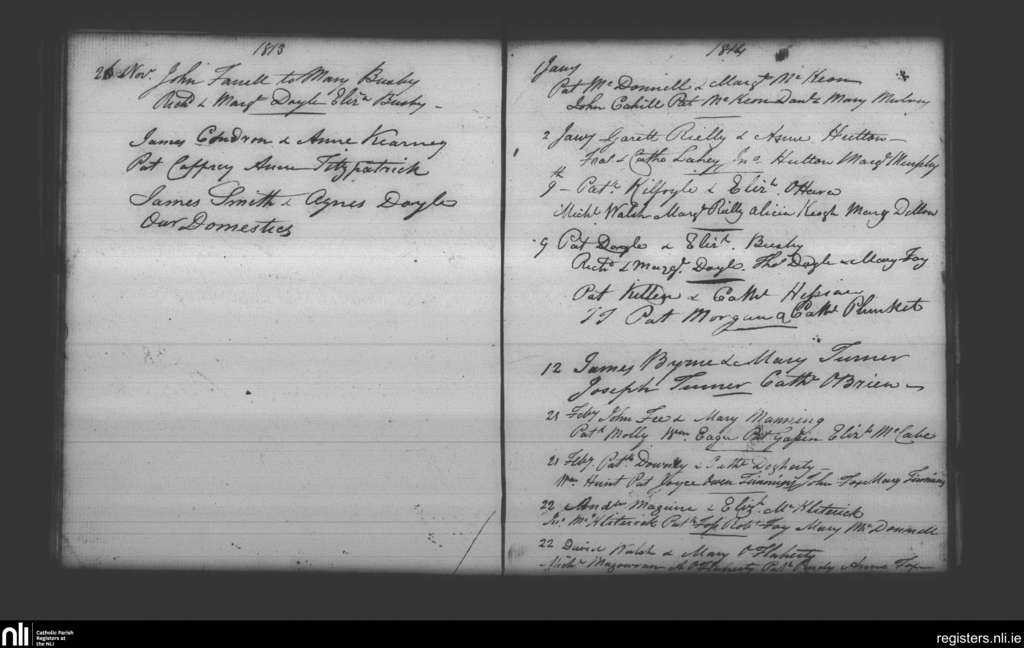 1813
26 Nov. John Farrell to Mary Busby
Richd & Margt Doyle Elizt Busby -
James Condron & Anne Kearney
Pat Caffrey Anne Fitzpatrick
James Smith & Agnes Doyle
Our Domestics
1814
1 Jany
Pat Mc Donnell & Margt Mc Keon
John Cahill Pat Mc Keon Danl & Mary
2 Jany Garett Rielly & Anne Hutton
& Cathe Lahey Jno. Hutton Margt Murphy
9th - Patk Kilfoyle & Elizt. O'Hara
Michl Walsh Margt Rielly Alicia Keogh Mary Dillon
9 Pat Doyle & Elizt. Busby
Richd & Margt. Doyle. Thos Doyle & Mary Fay
Pat & Cathe
Pat Morgan & Cathe Plunket
12 James Byrne & Mary Turner
Joseph Turner Cathe O'Brien -
21 Feby John Fee & Mary Manning
Patk Molly Wm Eagan Pat Elizth Mc Cabe
21 Feby. Patk Downey & Cathe Dogherty
Wm Hunt Pat Joyce Owen John Fox Mary
22 Andw Maguire & Elizt. Mc Kliterick
Jno Mc Kliterick Patk Fox Robt Fay Mary Mc Donnell
22 David Walsh & Mary O'Flaherty
Michl Magowran O'Flaherty Patk Anne Fox
nli
Catholic Parish
Registers at
the NLI
registers.nli.ie